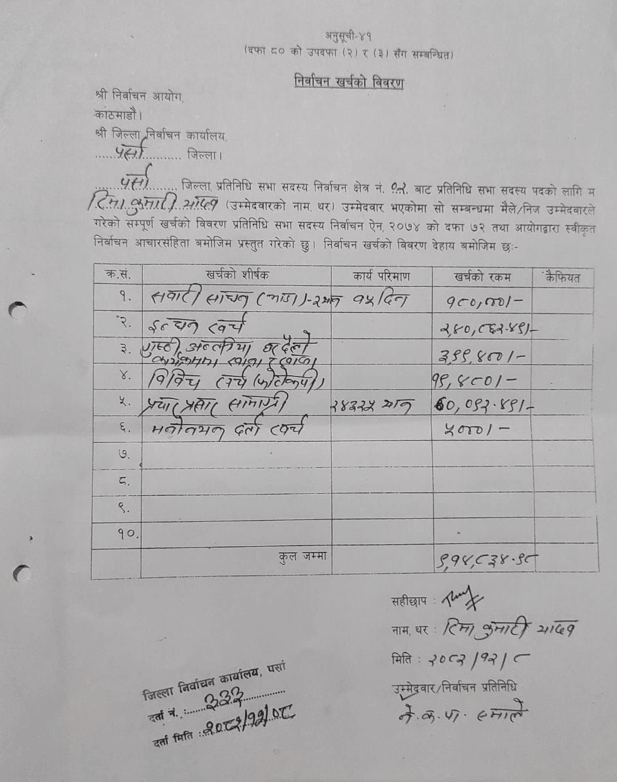 अनुसूची-४१
(दफा ८० को उपदफा (२) र (३) सँग सम्बन्धित)
निर्वाचन खर्चको विवरण
श्री निर्वाचन आयोग,
काठमाडौं।
श्री जिल्ला निर्वाचन कार्यालय,
पर्सा जिल्ला।
पर्सा जिल्ला, प्रतिनिधि सभा सदस्य निर्वाचन क्षेत्र नं. बाट प्रतिनिधि सभा सदस्य पदको लागि म
रिमा कुमारी यादव (उम्मेदवारको नाम, थर) उम्मेदवार भएकोमा सो सम्बन्धमा मैले/निज उम्मेदवारले
गरेको सम्पूर्ण खर्चको विवरण प्रतिनिधि सभा सदस्य निर्वाचन ऐन, २०७४ को दफा ७२ तथा आयोगद्वारा स्वीकृत
निर्वाचन आचारसंहिता बमोजिम प्रस्तुत गरेको छु। निर्वाचन खर्चको विवरण देहाय बमोजिम छः-
क्र.सं. खर्चको शीर्षक कार्य परिमाण खर्चको रकम कैफियत
१. सवारी साधन (भाडा)-२थान १५ दिन १८०,०००।-
२. इन्धन खर्च २४०,८६२.४९।-
३. घर दैलो
कार्यक्रममा खाजा र खाना ३९९,४००।-
४. विविध खर्च (फोटोकपी) १९,४८०।-
५. प्रचार प्रसार सामाग्री २४३२५ थान ६०,०९२.४९।-
६. मनोनयन दर्ता खर्च ५०००।-
७.
८.
९.
१०.
कुल जम्मा ९,१४,८३४.९८
सहीछाप :
नाम, थर: रिमा कुमारी यादव
मिति : २०८२/१२/८
उम्मेदवार/निर्वाचन प्रतिनिधि
ने.क.पा. एमाले
जिल्ला निर्वाचन कार्यालय, पर्सा
दर्ता नं. : ३३३
दर्ता मिति : २०८२/१२/०८